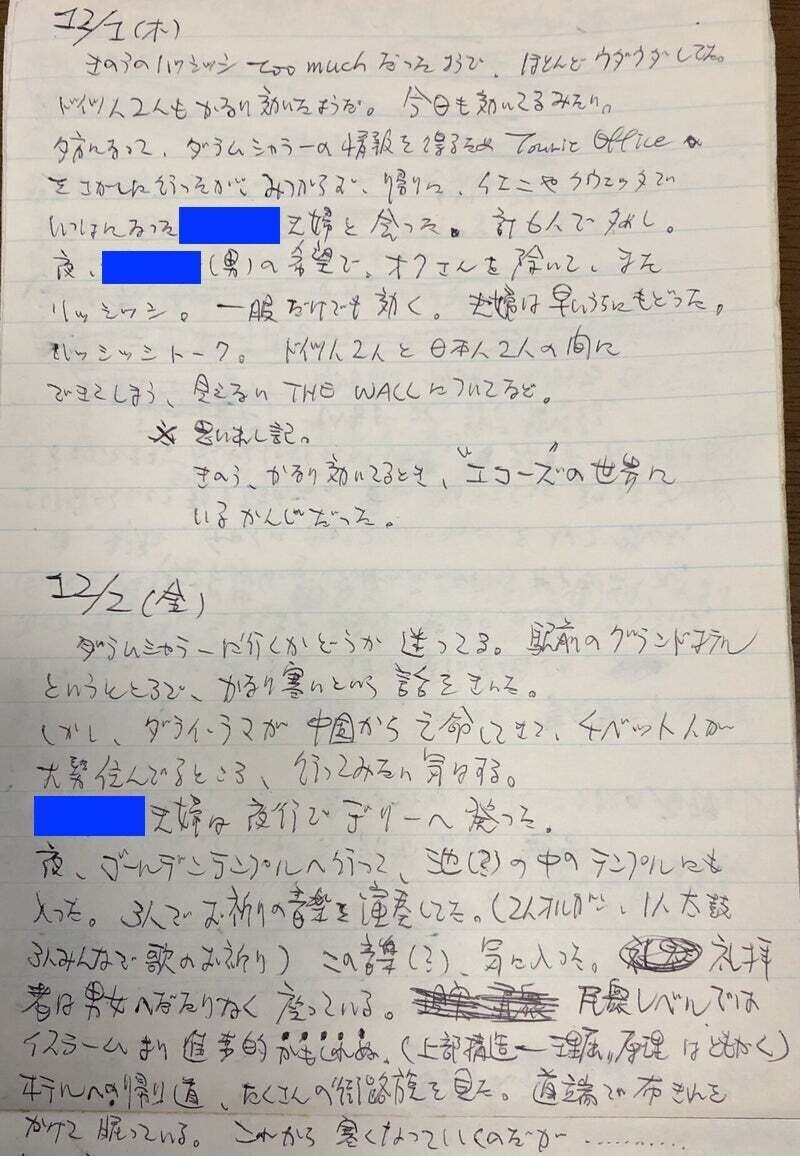 12/1(木)
きのうのハッシッシ too much だったようで、ほとんどウダウダしてた。
ドイツ人2人もかなり効いたようだ。今日も効いてるみたい。
夕方になって、ダラムシャラーの情報を得るため Tourist Office
をさがしに行ったが、みつからず、帰りに、イエニやクウェッタで
いっしょになった 夫婦と会った。計6人で夕めし。
夜、 (男)の希望で、オクさんを除いて、また
ハッシッシ。一服だけでも効く。夫婦は早いうちにもどった。
ハッシッシトーク。ドイツ人2人と日本人2人の間に
できてしまう、見えない THE WALL についてなど。
※ 思い出し記。
きのう、かなり効いてるとき、"エコーズ"の世界に
いるかんじだった。
12/2(金)
ダラムシャラーに行くかどうか迷ってる。駅前のグランドホテル
というところで、かなり寒いという話をきいた。
しかし、ダライ・ラマが中国から亡命してきて、チベット人が
大勢住んでるところ、行ってみたい気はする。
夫婦は夜行でデリーへ発った。
夜、ゴールデンテンプルへ行って、池(?)の中のテンプルにも
入った。3人でお祈りの音楽を演奏してた。(2人オルガン、1人太鼓
3人みんなで歌のお祈り) この音楽(?)、気に入った。 礼拝
者は男女へだたりなく座っている。 民衆レベルでは
イスラームより進歩的かもしれぬ。(上部構造―理屈〃原理はともかく)
ホテルへの帰り道、たくさんの街路族を見た。道端で布きれを
かけて眠っている。これから寒くなっていくのだが…………